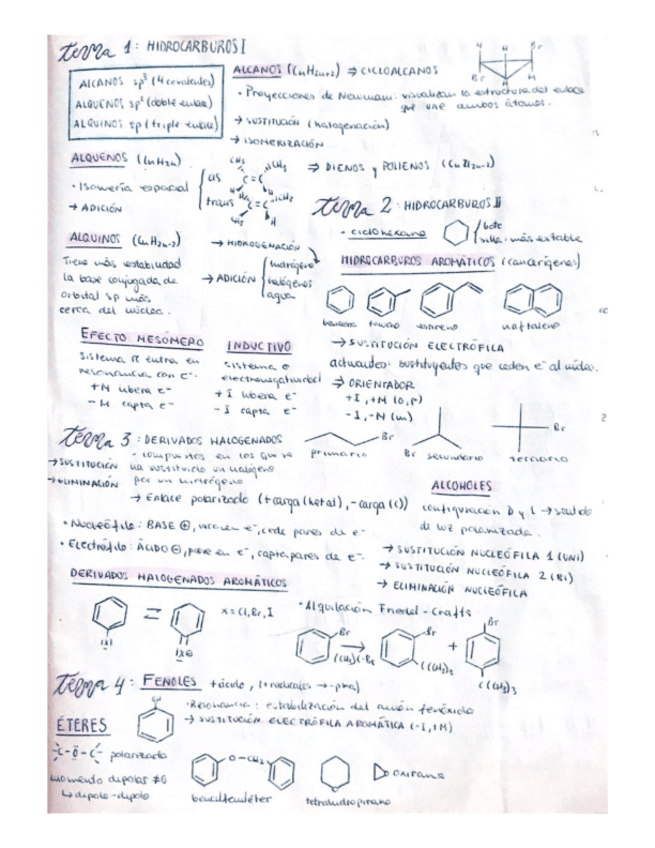 tema 1: HIDROCARBUROS I
ALCANOS sp³ (4 covalentes)
ALQUENOS sp² (doble enlace)
ALQUINOS sp (triple enlace)
ALCANOS (CnH2n+2) ⇒ CICLOALCANOS
• Proyecciones de Newmam: visualizan la estructura del enlace
que une ambos átomos.
→ SUSTITUCIÓN (halogenación)
→ ISOMERIZACIÓN
H H Br
Br H H
ALQUENOS (CnH2n)
• Isomería espacial
cis
trans
→ ADICIÓN
⇒ DIENOS y POLIENOS (CnH2n-2)
ALQUINOS (CnH2n-2)
Tiene más estabilidad
la base conjugada de
orbital sp más
cerca del núcleo.
→ HIDROGENACIÓN
→ ADICIÓN
hidrógeno
halógenos
agua
tema 2: HIDROCARBUROS II
• ciclohexano
bote
silla: más estable
HIDROCARBUROS AROMÁTICOS (cancerígenos)
benceno tolueno estireno naftaleno
→ SUSTITUCIÓN ELECTRÓFILA
activantes: sustituyentes que ceden e⁻ al núcleo.
→ ORIENTADOR
+I, +M (o, p)
-I, -M (m)
EFECTO MESÓMERO
Sistema π entra en
resonancia con e⁻.
+M libera e⁻
-M capta e⁻
INDUCTIVO
sistema σ
electronegatividad
+I libera e⁻
-I capta e⁻
tema 3: DERIVADOS HALOGENADOS
- compuestos en los que se
ha sustituido un halógeno
por un hidrógeno
→ SUSTITUCIÓN
→ ELIMINACIÓN
Br
primario
Br secundario
Br
terciario
→ Enlace polarizado (+carga (halat), -carga (C))
• Nucleófilo: BASE ⊕, e⁻, cede pares de e⁻
• Electrófilo: ÁCIDO ⊖, e⁻, capta pares de e⁻
ALCOHOLES
configuración D y L → sentido
de luz polarizada.
→ SUSTITUCIÓN NUCLEÓFILA 1 (UNI)
→ SUSTITUCIÓN NUCLEÓFILA 2 (BI)
→ ELIMINACIÓN NUCLEÓFILA
DERIVADOS HALOGENADOS AROMÁTICOS
x = Cl, Br, I
• Alquilación Friedel-Crafts
Br
Br
+
Br
tema 4: FENOLES + ácido,
OH
• Resonancia: estabilización del anión fenóxido
→ SUSTITUCIÓN ELECTRÓFILA AROMÁTICA (-I, +M)
ÉTERES
-C-O-C- polarizado
Momento dipolar ≠0
↳ dipolo-dipolo
O-CH2
tetrahidropirano
oxirano